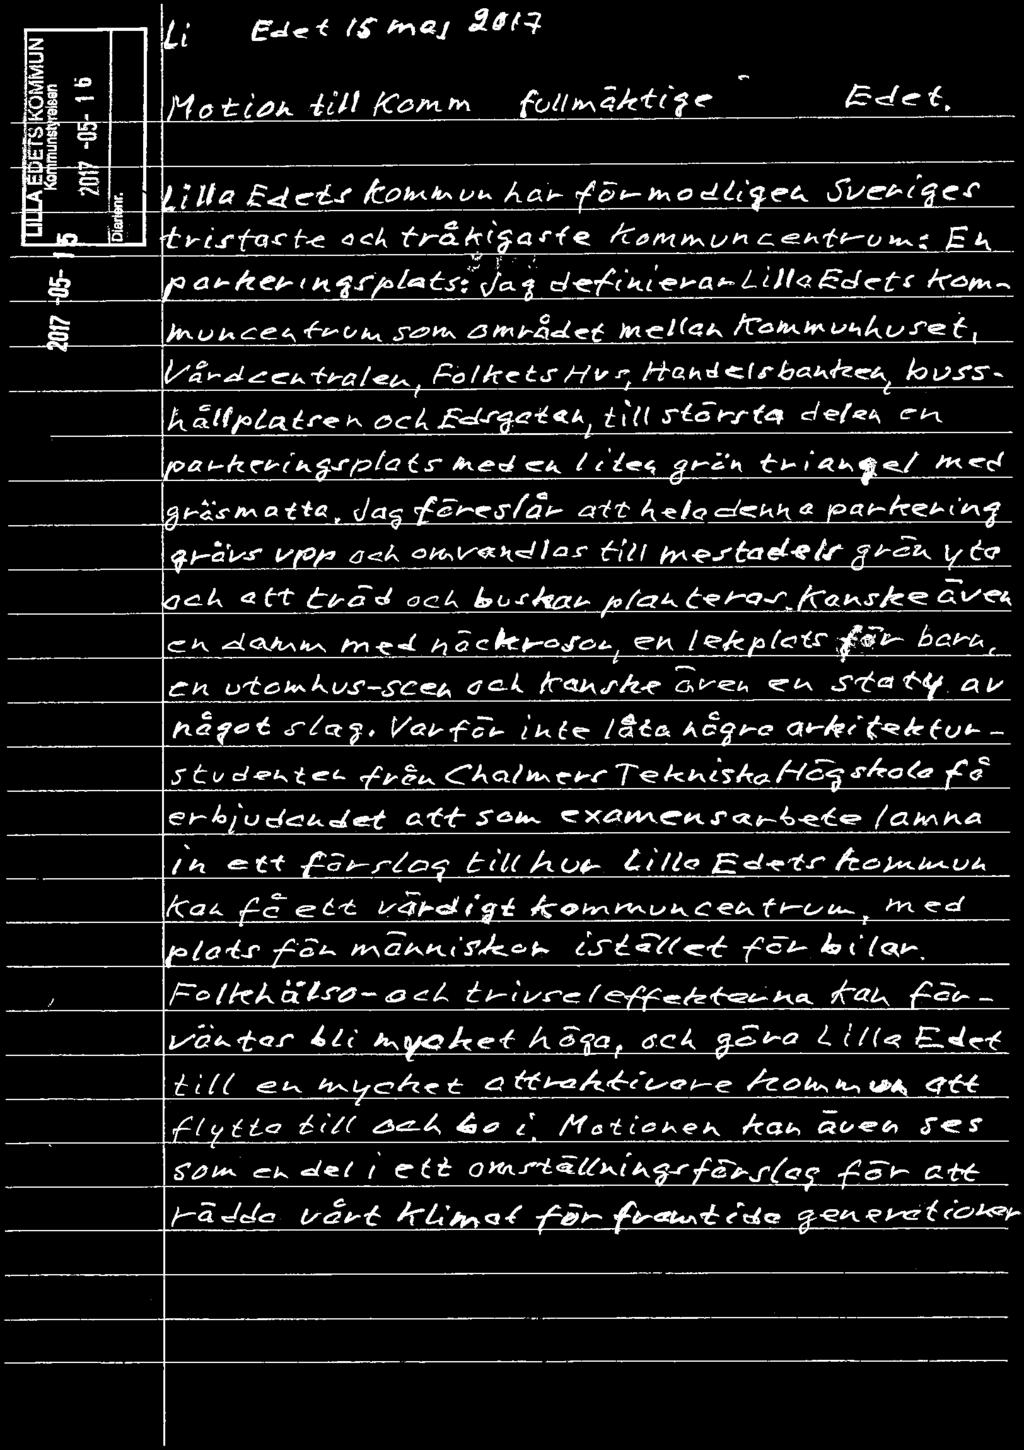 LILLA EDETS KOMMUN
Kommunstyrelsen
2017 -05- 16
Diarienr.
2017 -05- 15
Li Edet 15 maj 2017
Motion till Komm fullmäktige Edet.
Lilla Edets Kommun har förmodligen Sveriges
tristaste och tråkigaste Kommuncentrum: En
parkeringsplats: Jag definierar Lilla Edets Kom-
muncentrum som området mellan Kommunhuset,
Vårdcentralen, Folkets Hus, Handelsbanken, buss-
hållplatsen och Edsgatan, till största delen en
parkeringsplats med en liten grön triangel med
gräsmatta. Jag föreslår att hela denna parkering
grävs upp och omvandlas till mestadels grön yta
och att träd och buskar planteras. Kanske även
en damm med näckrosor, en lekplats för barn,
en utomhus-scen och Kanske även en staty av
något slag. Varför inte låta några arkitektur-
studenter från Chalmers Tekniska Högskola få
erbjudandet att som examensarbete lämna
in ett förslag till hur Lilla Edets kommun
kan få ett värdigt kommuncentrum, med
plats för människor istället för bilar.
Folkhälso- och trivseleffekterna kan för-
väntas bli mycket höga, och göra Lilla Edet
till en mycket attraktivare kommun att
flytta till och bo i. Motionen kan även ses
som en del i ett omställningsförslag för att
rädda vårt Klimat för framtida generationer